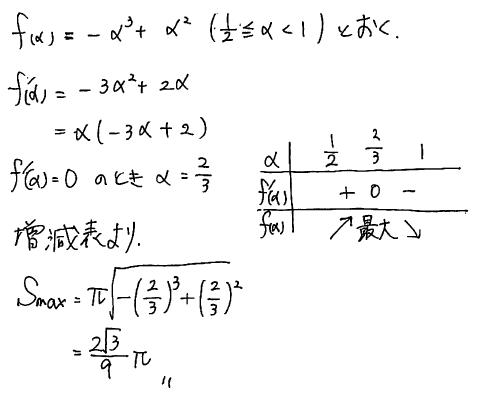 f(α) = -α³ + α² (1/2 ≦ α < 1) とおく.
f'(α) = -3α² + 2α
= α(-3α + 2)
f'(α) = 0 のとき α = 2/3
α | 1/2 2/3 1
f'(α) | + 0 -
f(α) | ↗ 最大 ↘
増減表より.
Smax = π√(-(2/3)³ + (2/3)²)
= 2√3/9 π 〃